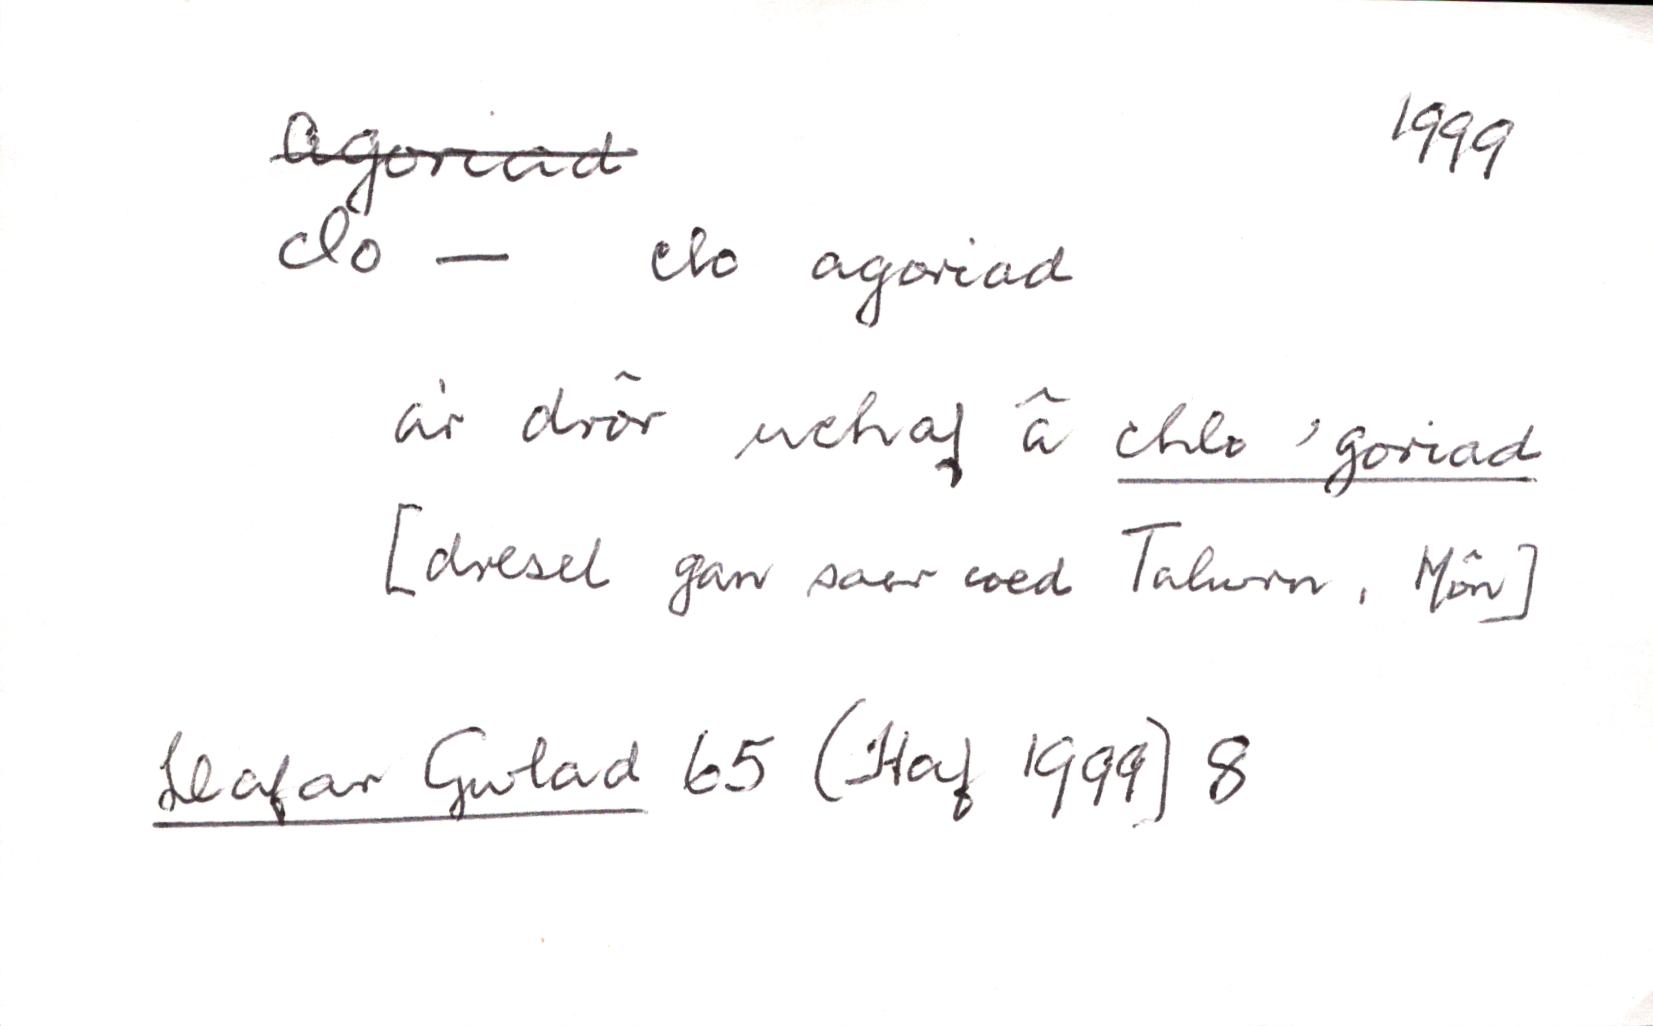 ~~agoriad~~ 1999
clo — clo agoriad
a'r drôr uchaf â chlo 'goriad
[dresel gan saer coed Talwrn, Môn]
Llafar Gwlad 65 (Haf 1999) 8